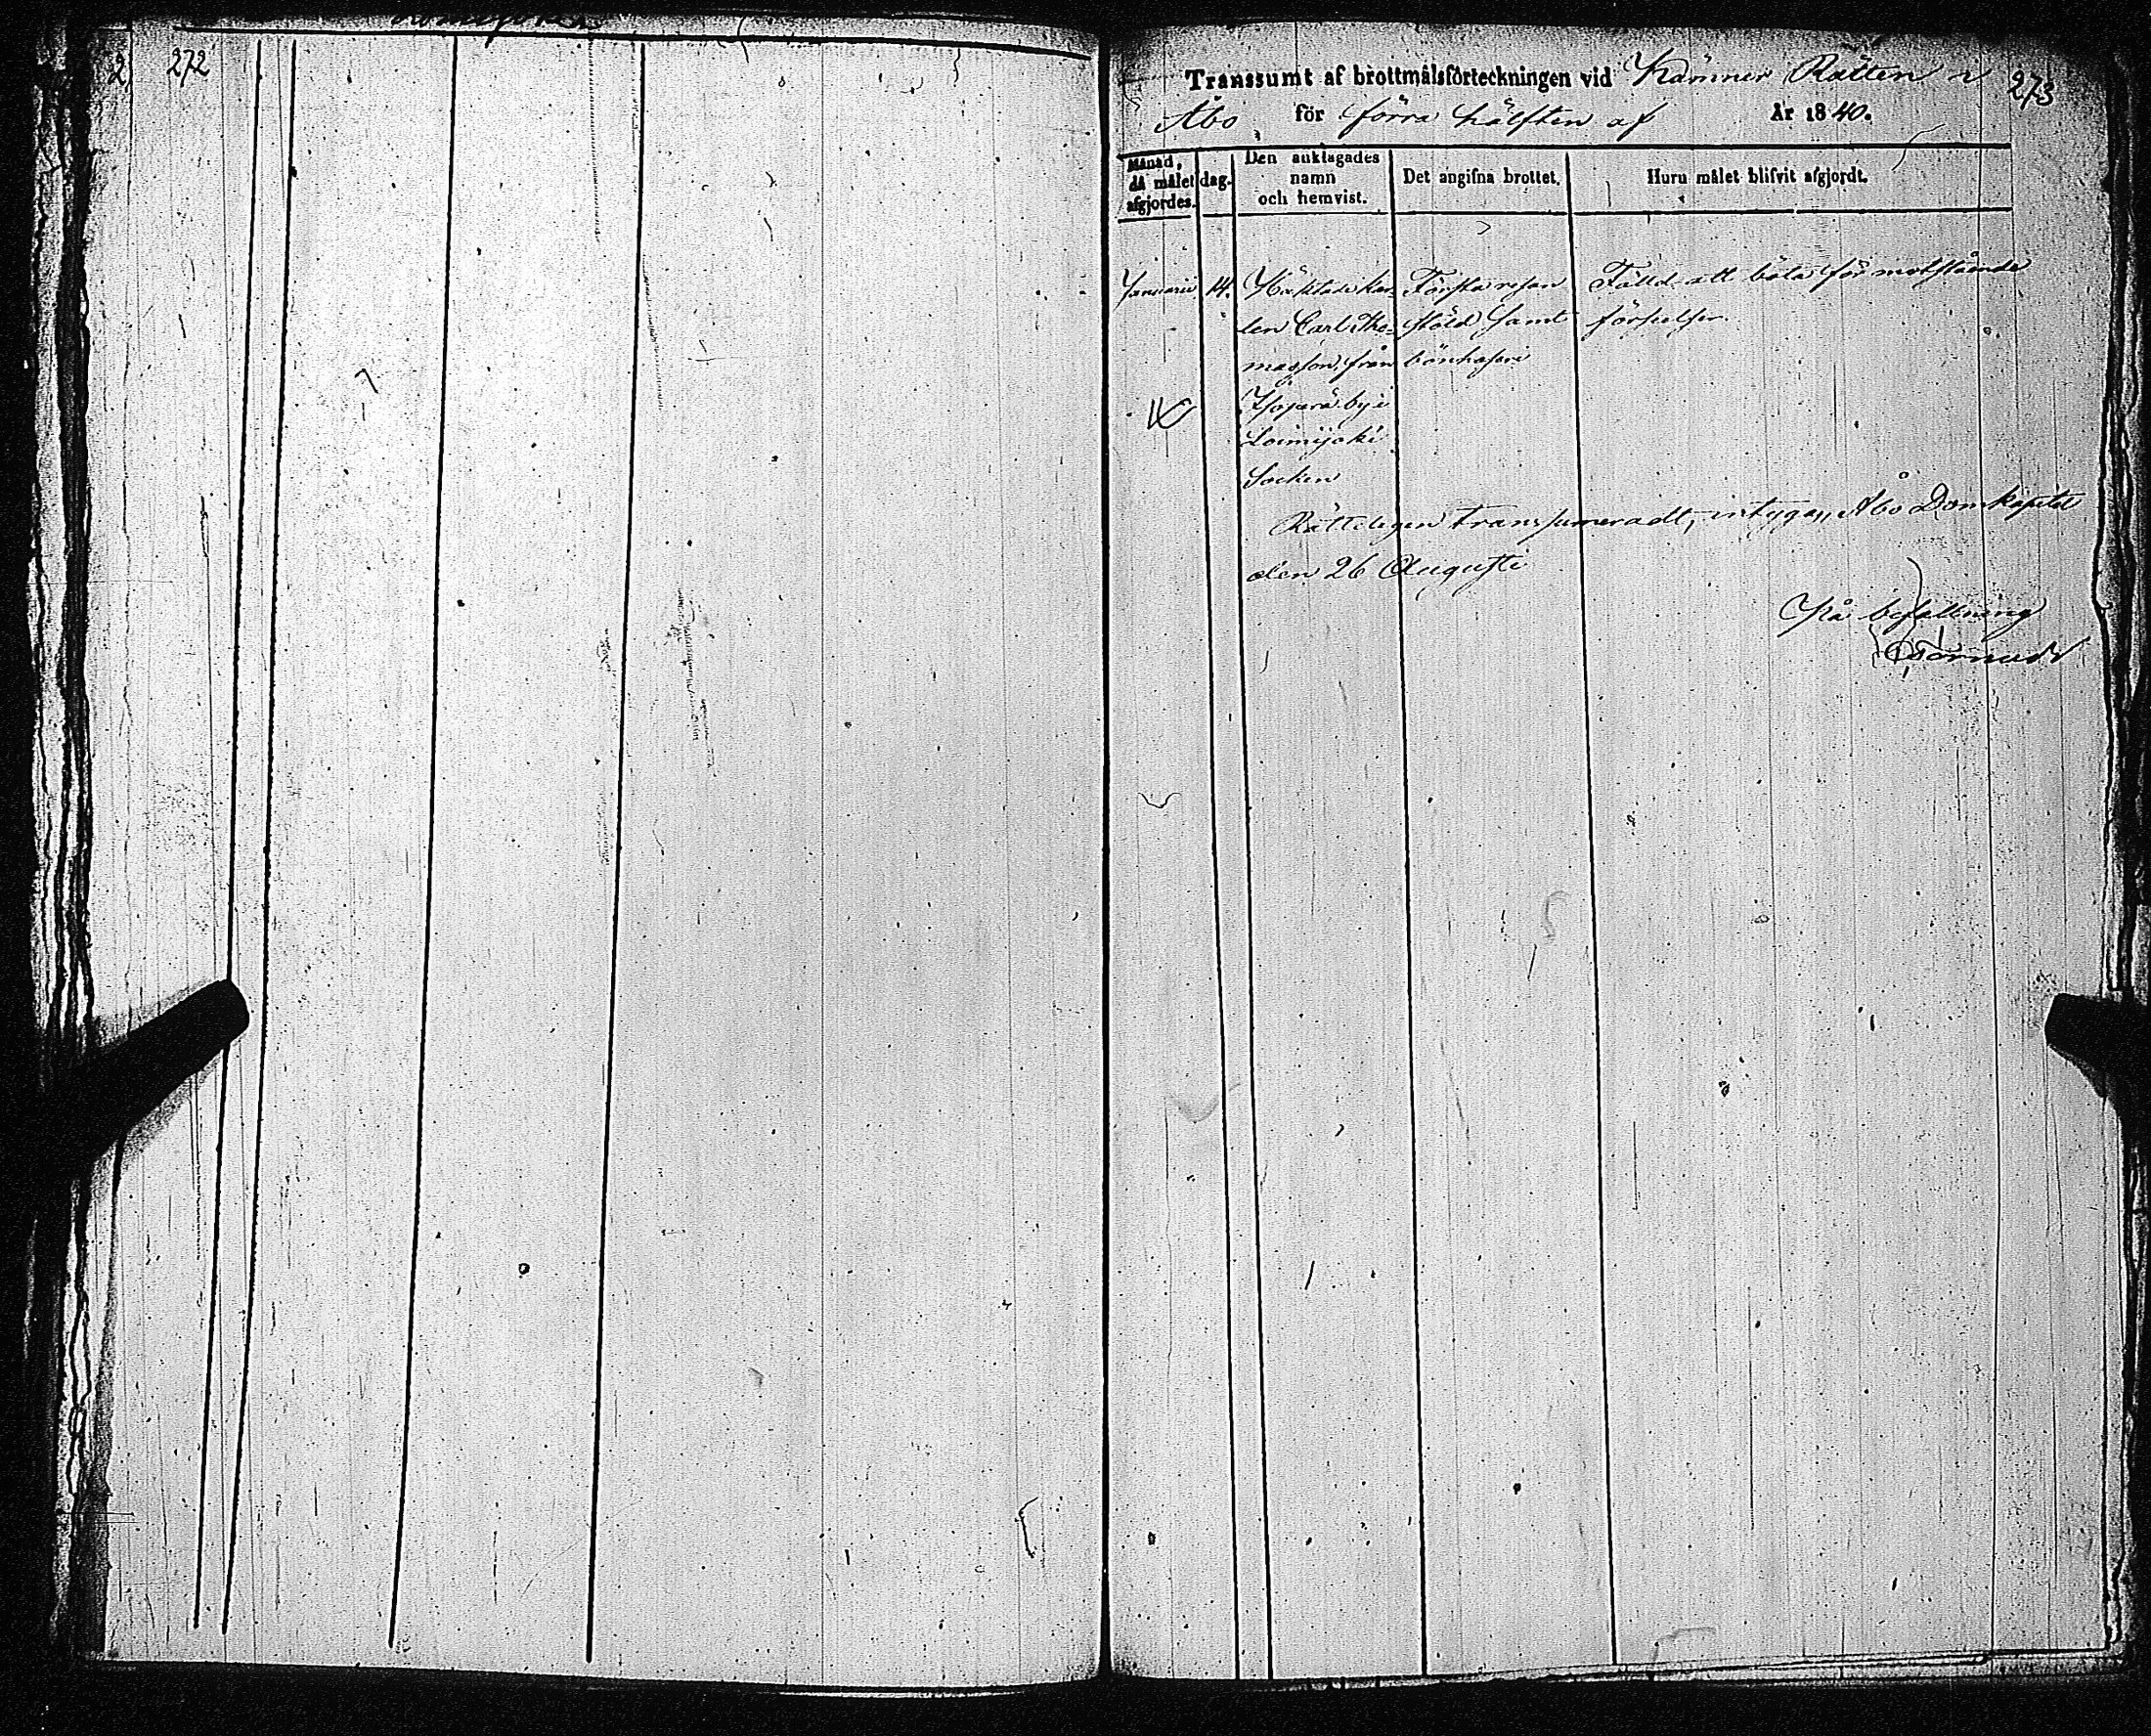 272
Transsumt af brottmålsförteckningen vid Kämner Rätten i 273
Åbo för förra hälften af År 1840.
Månad, då målet afgjordes.
dag.
Den anklagades namn och hemvist.
Det angifna brottet.
Huru målet blifvit afgjordt.
Januarii 14. Häktade kar- Första resan Fälld att böta för motstående
len Carl Tho- stöld samt förseelser.
masson, från bönhaseri
by i
Loimijoki
Socken
Rätteligen transsumeradt, intygar, Åbo Domkapitel
den 26 Augusti
På befallning